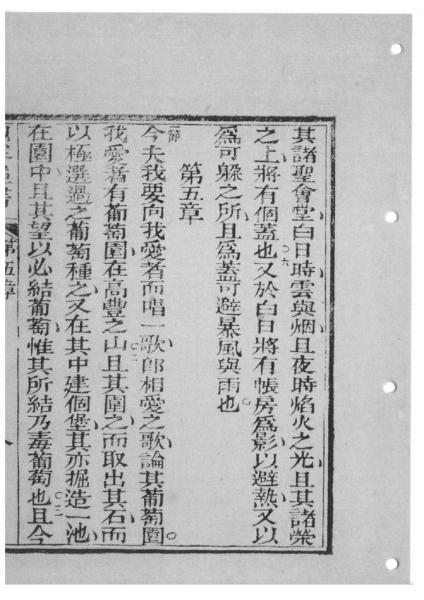 其諸聖會堂白日時雲與烟且夜時焰火之光且其諸榮
之上將有個蓋也○六又於白日將有帳房爲影以避熱又以
爲可躲之所且爲蓋可避暴風與雨也
第五章
一節今夫我要向我愛者而唱一歌卽相愛之歌論其葡萄園○
我愛者有葡萄園在高豐之山○二且其圍之而取出其石而
以極選過之葡萄種之又在其中建個堡其亦掘造一池
在園中且其望以必結葡萄惟其所結乃毒葡萄也○三且今
第五章